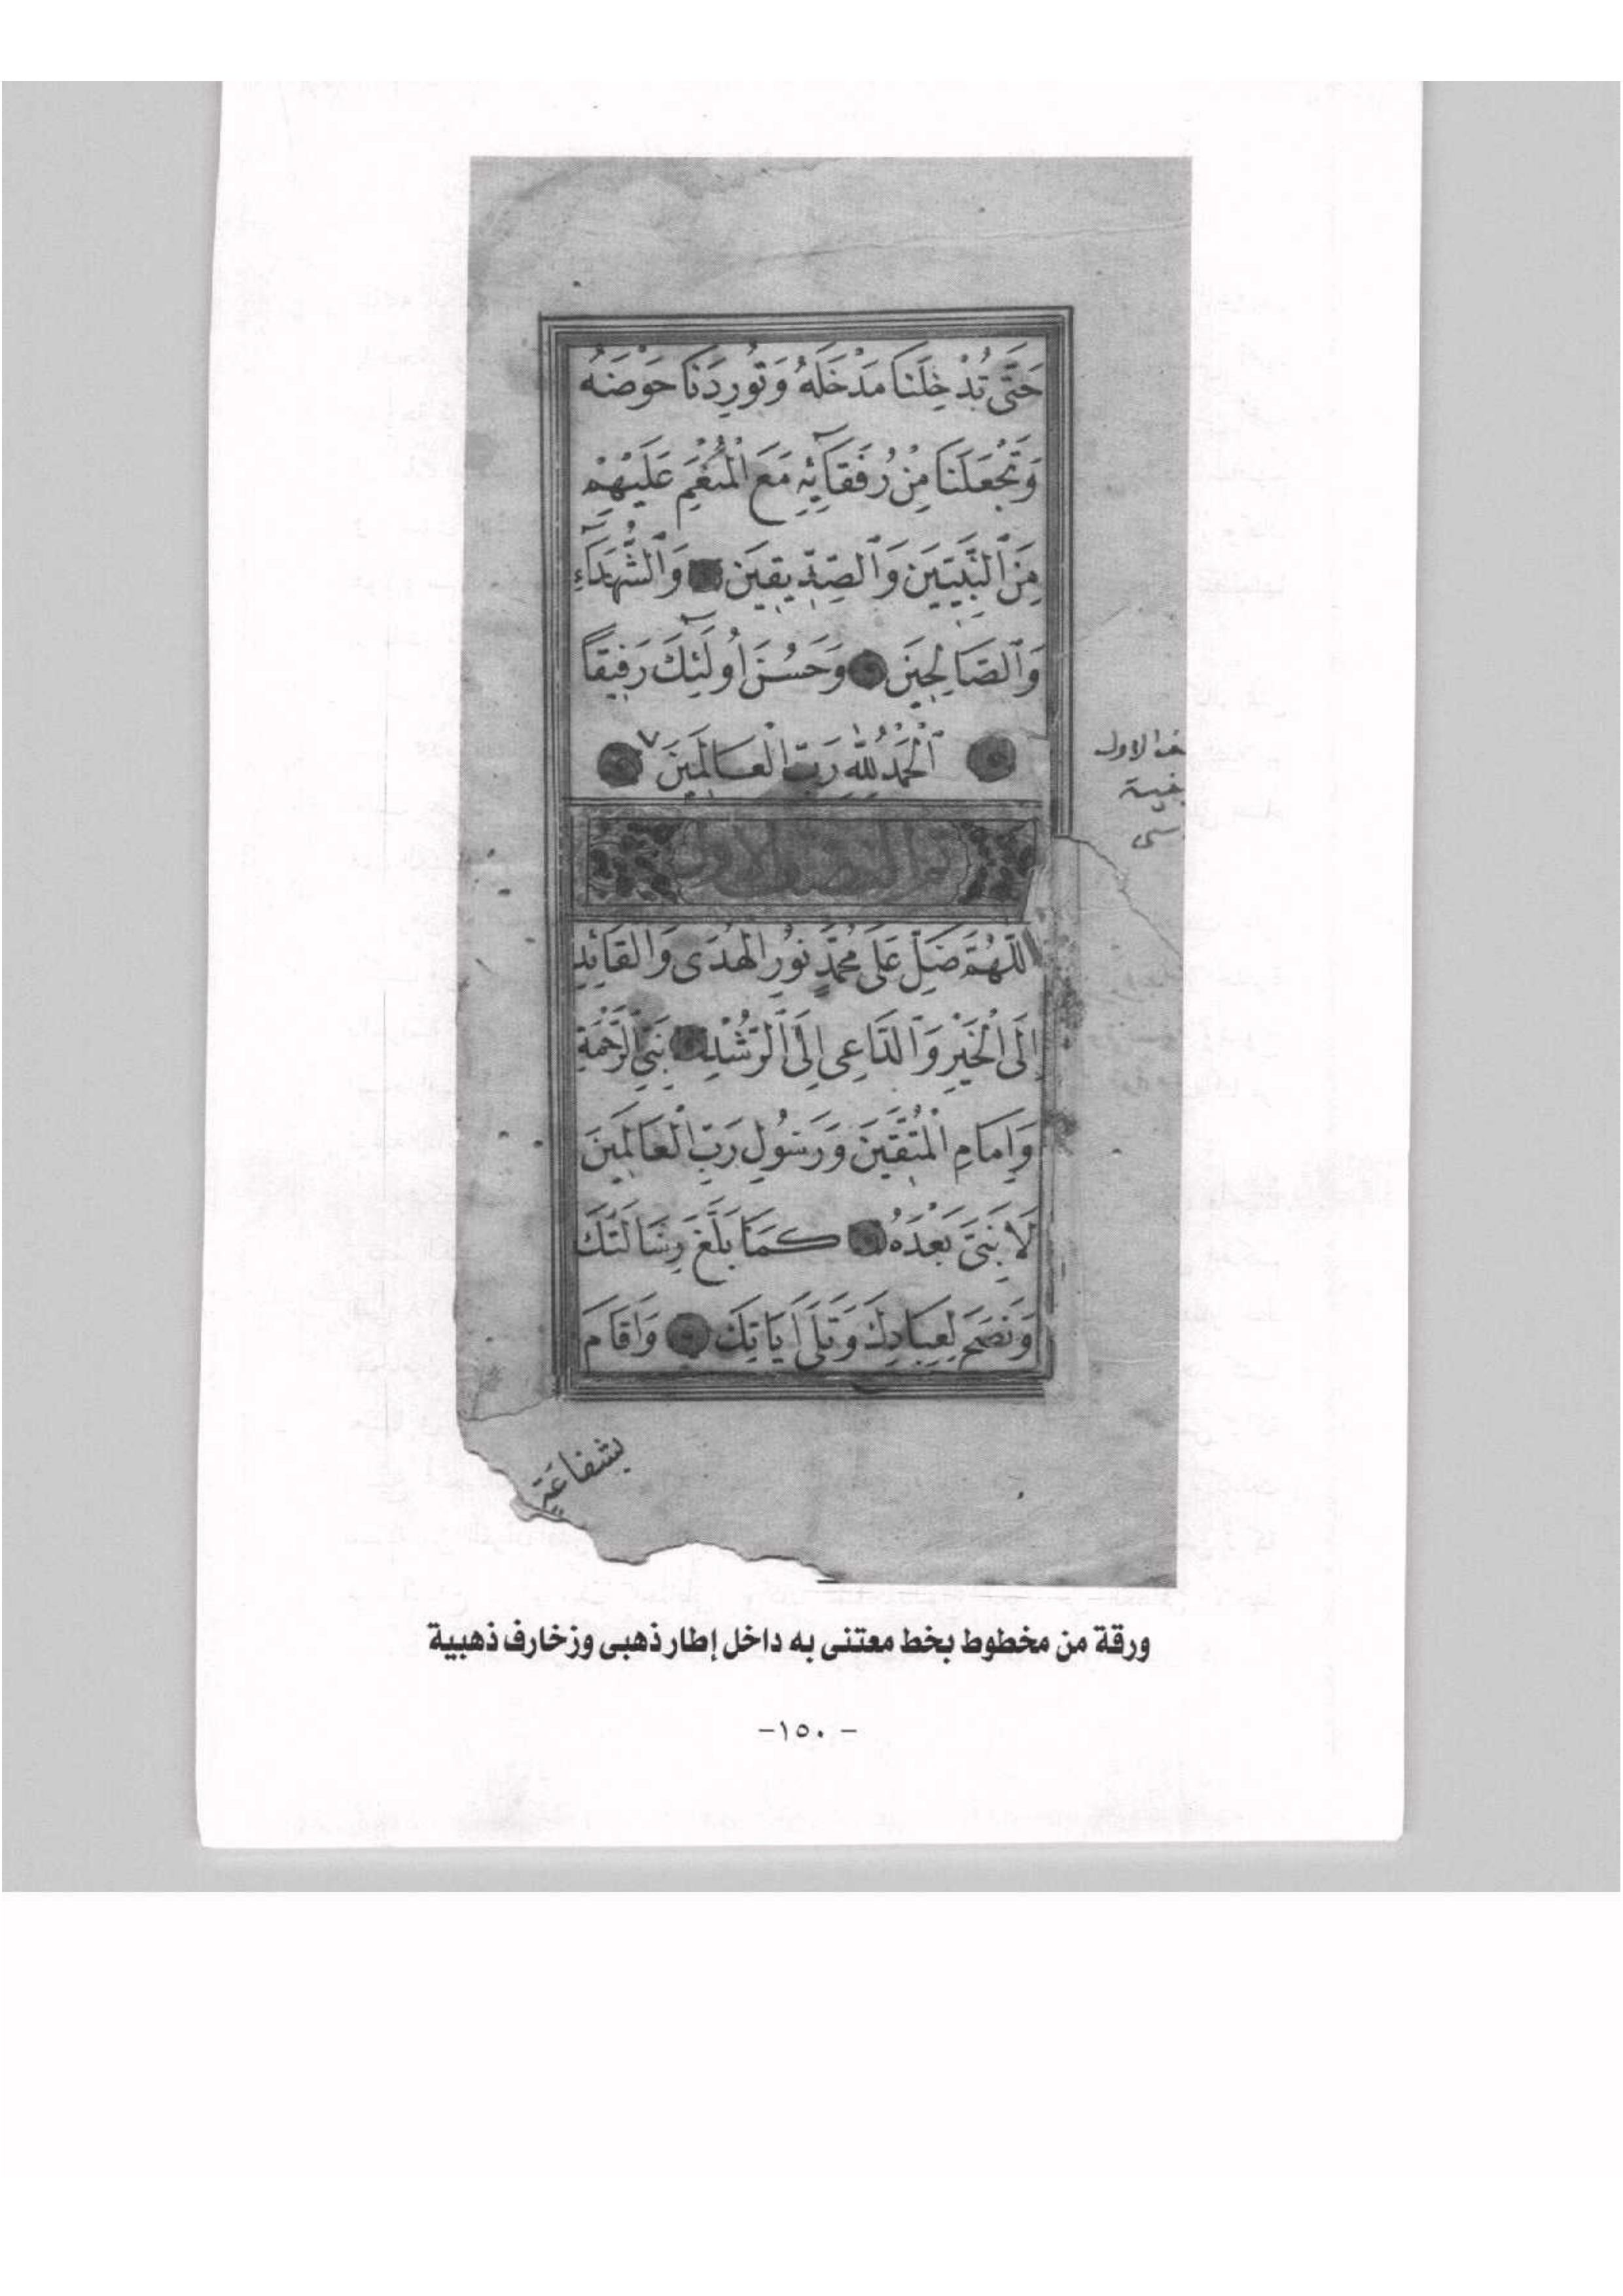 حَتَّى تُدْخِلَنَا مَدْخَلَهُ وَتُورِدَنَا حَوْضَهُ
وَتَجْعَلَنَا مِنْ رُفَقَآئِهِ مَعَ الْمُنْعَمِ عَلَيْهِمْ
مِنَ ٱلنَّبِيِّينَ وَٱلصِّدِّيقِينَ وَٱلشُّهَدَآءِ
وَٱلصَّالِحِينَ وَحَسُنَ أُولَٰٓئِكَ رَفِيقًا
ٱلْحَمْدُ لِلّٰهِ رَبِّ الْعَالَمِينَ
الاول
اللّٰهُمَّ صَلِّ عَلَى مُحَمَّدٍ نُورِ الْهُدَى وَالْقَائِدِ
إِلَى الْخَيْرِ وَٱلدَّاعِى إِلَى ٱلرُّشْدِ نَبِيِّ ٱلرَّحْمَةِ
وَإِمَامِ الْمُتَّقِينَ وَرَسُولِ رَبِّ الْعَالَمِينَ
لَا نَبِيَّ بَعْدَهُ كَمَا بَلَّغَ رِسَالَتَكَ
وَنَصَحَ لِعِبَادِكَ وَتَلَى أَيَاتِكَ وَأَقَامَ
بشفاعَةِ
ورقة من مخطوط بخط معتنى به داخل إطار ذهبى وزخارف ذهبية
-١٥٠ -